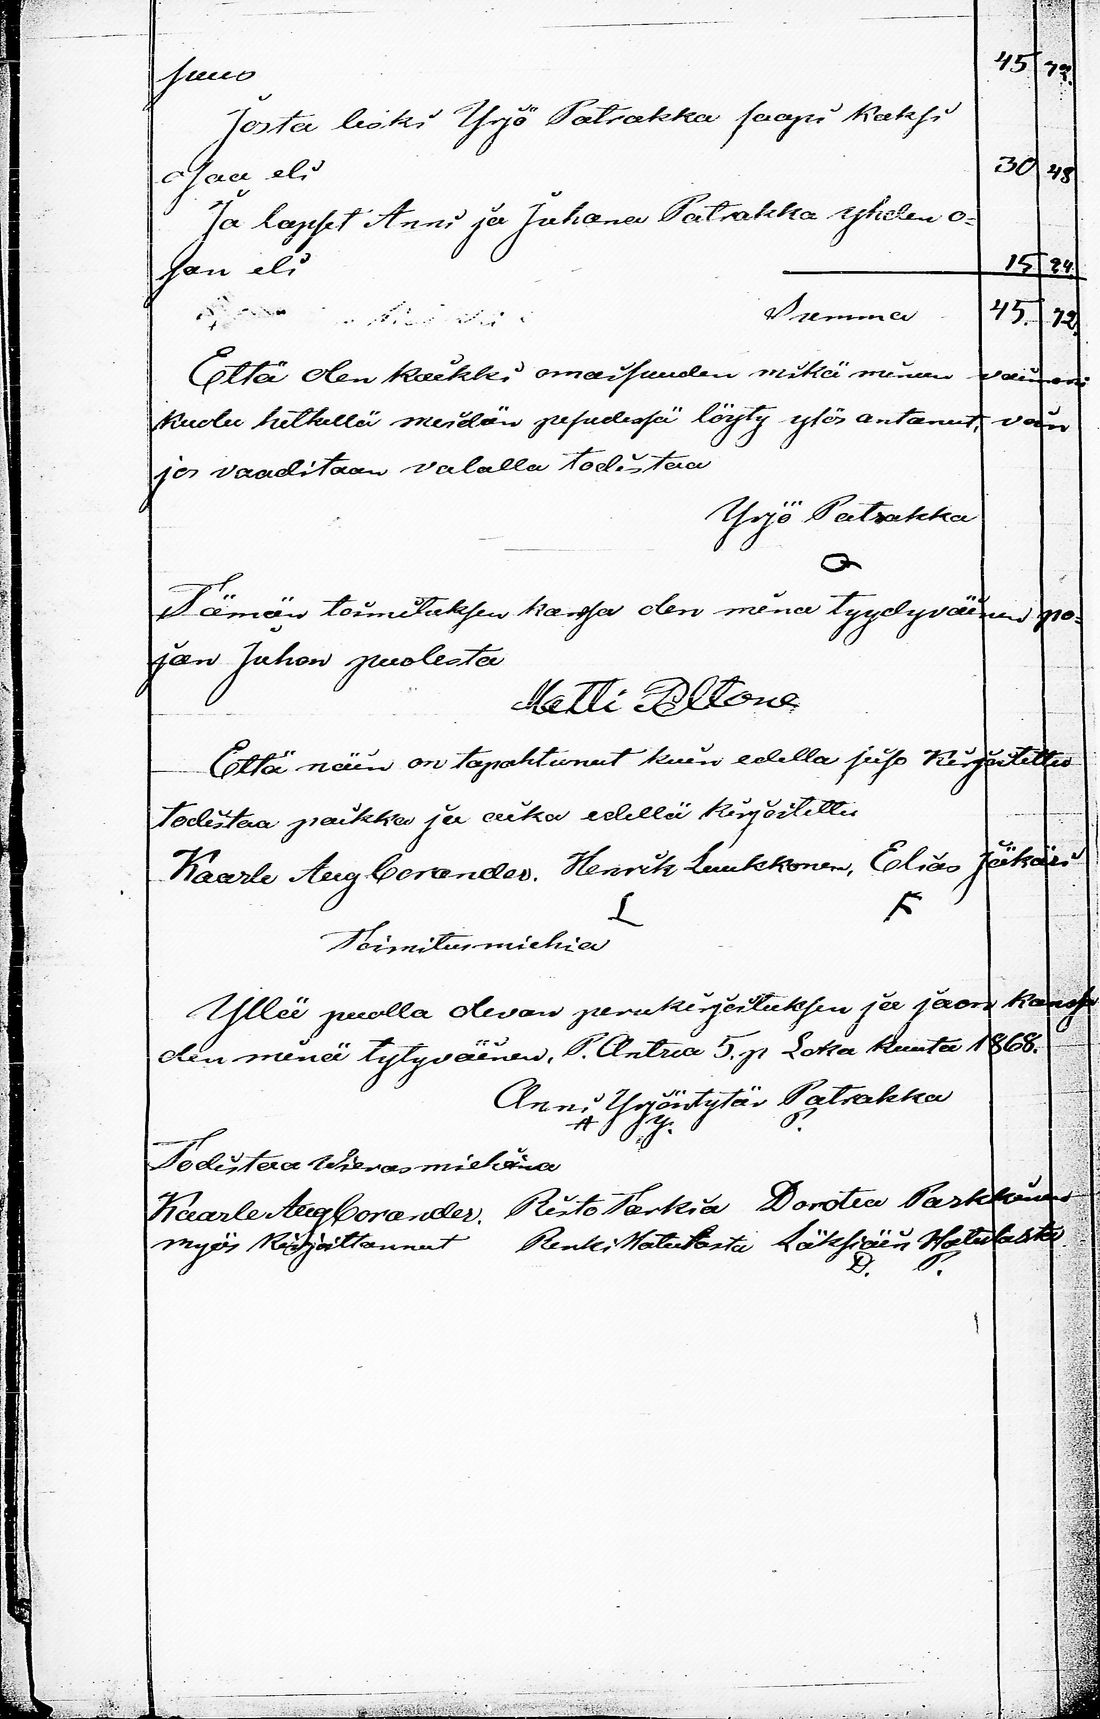 suus 45 72.
Josta leski Yrjö Patrakka saapi kaksi
osaa eli 30 48
Ja lapset Anni ja Juhana Patrakka yhden o-
san eli 15 24.
Summa 45. 72.
Että olen kaikki omaisuuden mikä minun vaimoni
kuolu hetkellä meidän pesudessä löyty ylös antanut, voin
jos vaaditaan valalla todistaa
Yrjö Patrakka
Tämän toimituksen kanssa olen minä tyydyväinen po-
jan Juhon puolesta
Matti Pltone
Että näin on tapahtunut kuin edellä siso kirjoitettu
todistaa paikka ja aika edellä kirjoitettu
Kaarle Aug Corander. Henrik Luukkonen, Elias Jääkäri
L
Toimitusmiehia
Yllä puolla olevan perukirjoituksen ja jaon kanssa
olen minä tytyväinen, P. Antrea 5. p Loka kuuta 1868.
Anni Yrjöntytär Patrakka
A Y. P.
Todistaa Wierasmiehinä
Kaarle Aug Corander. Risto Tarkia Dorotea Parkkonen
myös kirjoittannut Renki Hatulasta Läksiäin Hatulasta
D. P.